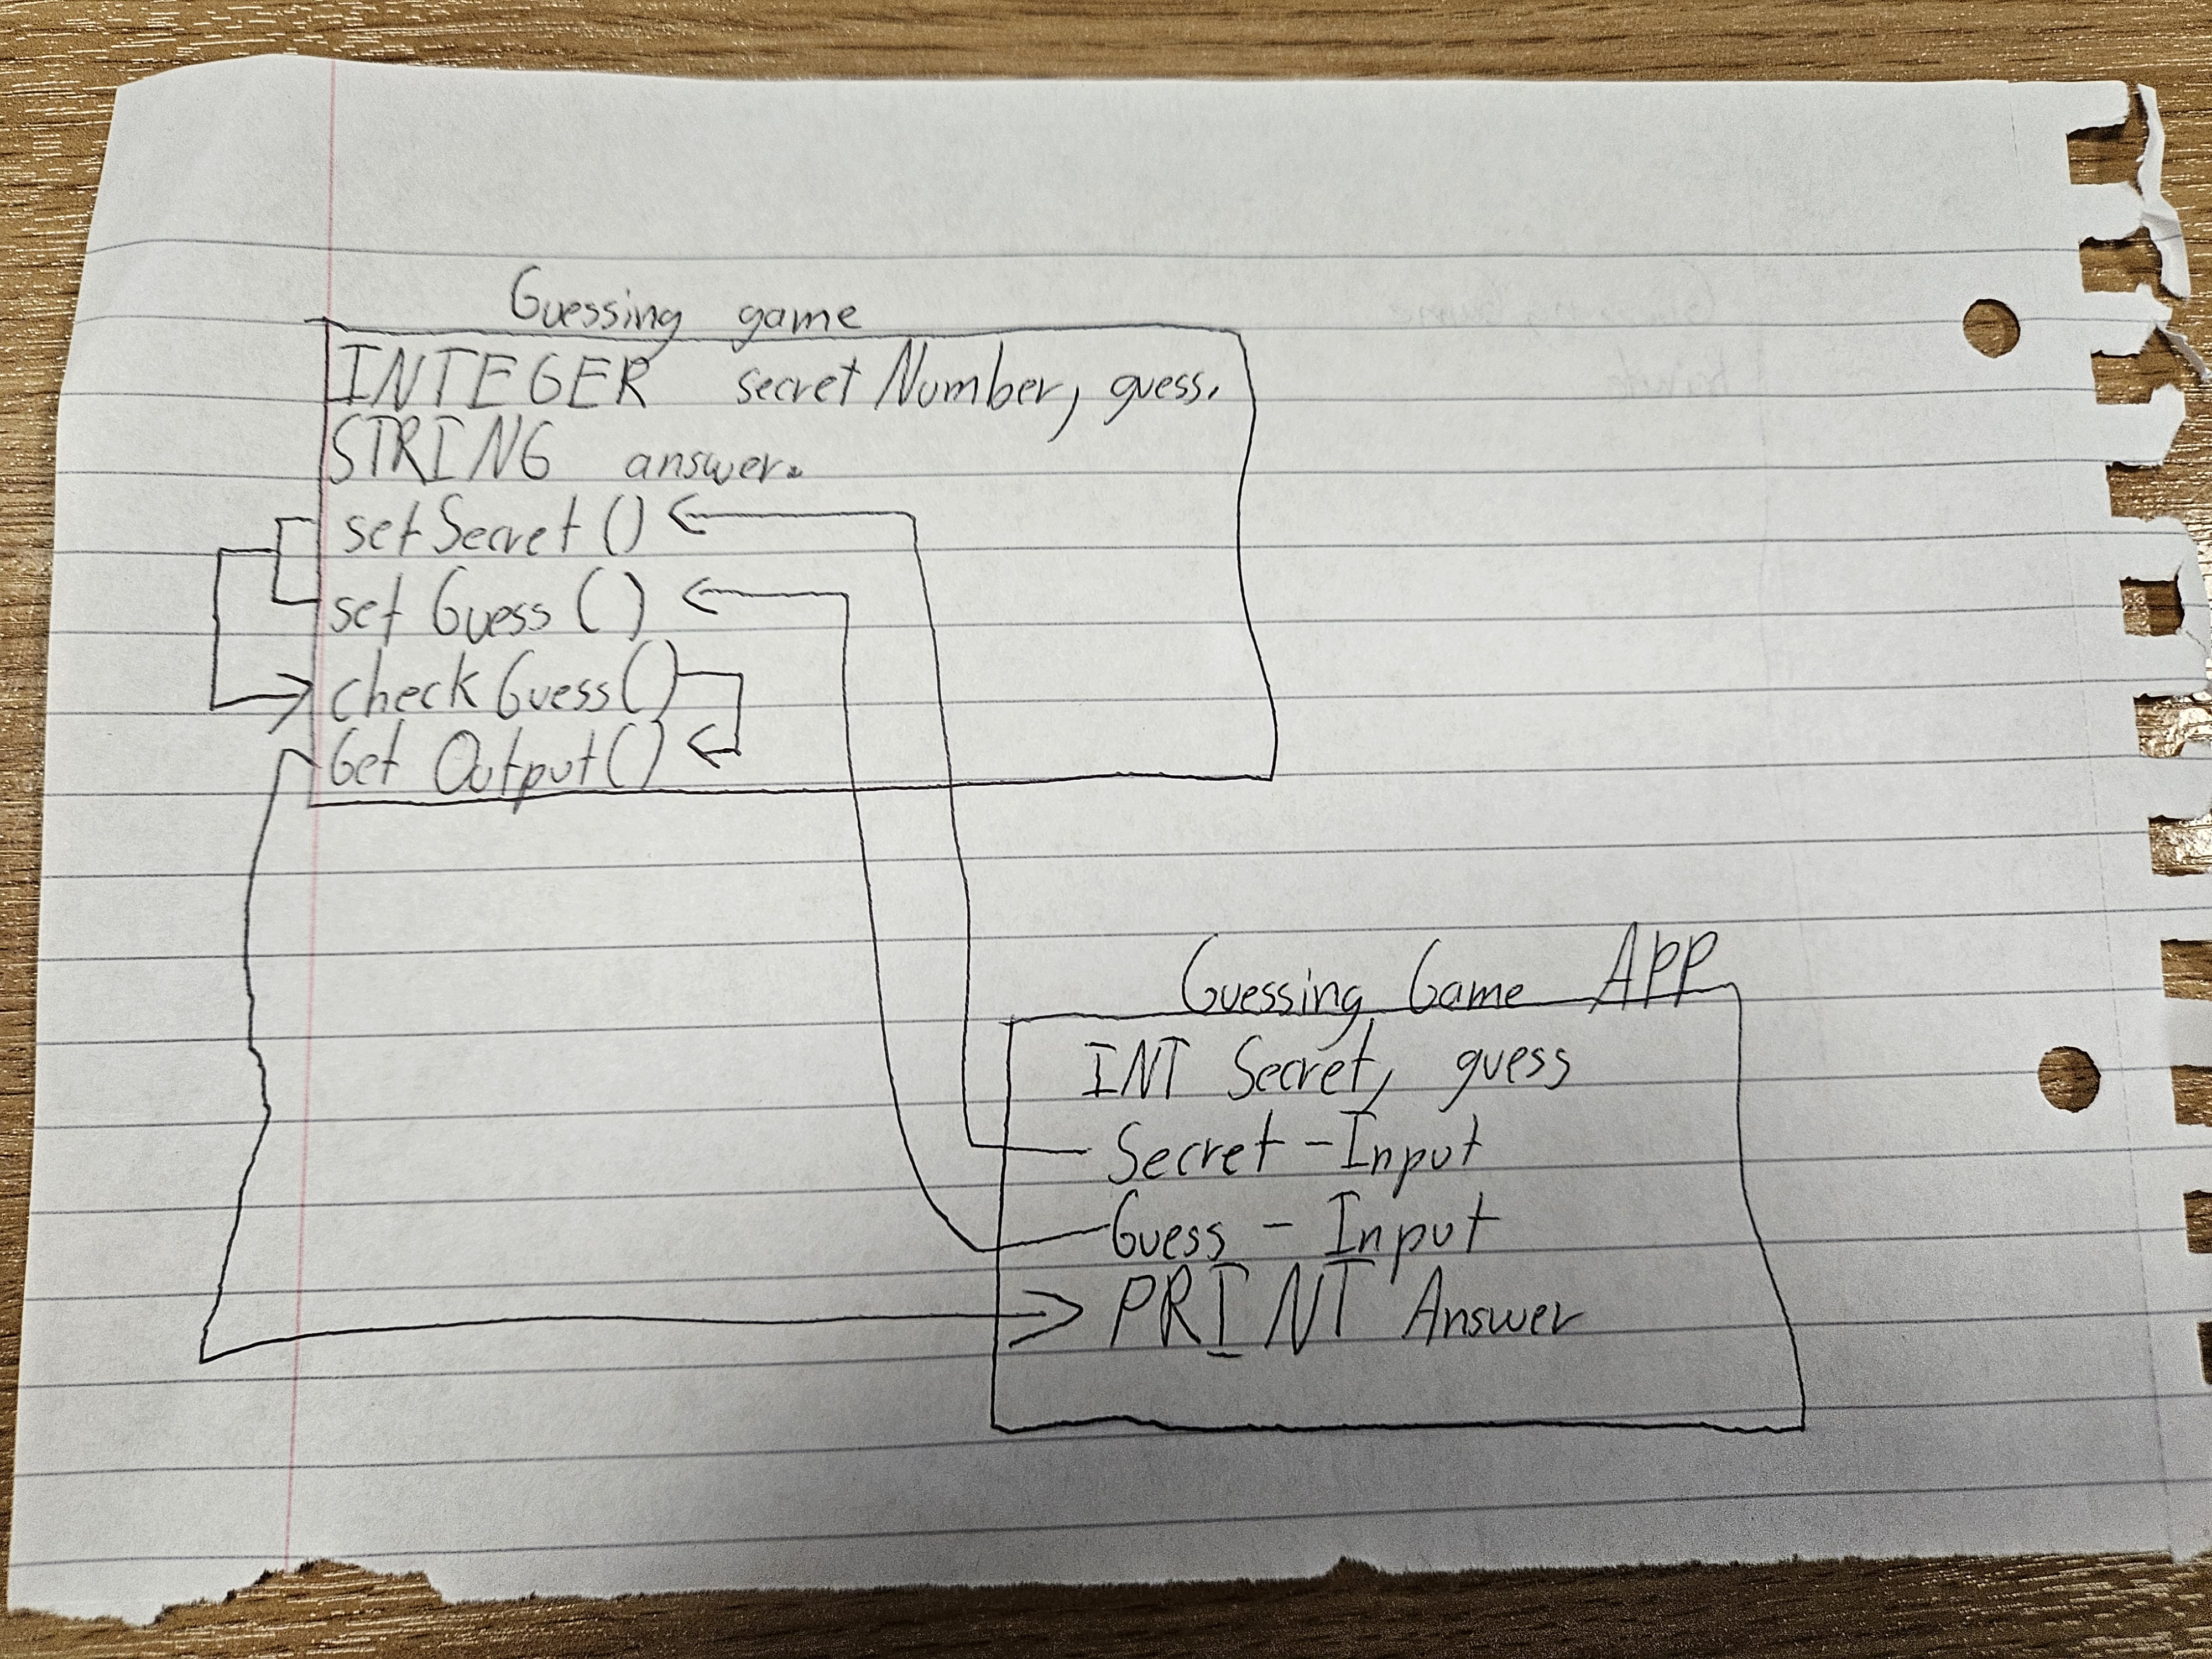 Guessing game
INTEGER secret Number, guess.
STRING answer.
set Secret ()
set Guess ()
check Guess ()
Get Output ()
Guessing Game App
INT Secret, guess
Secret - Input
Guess - Input
PRINT Answer